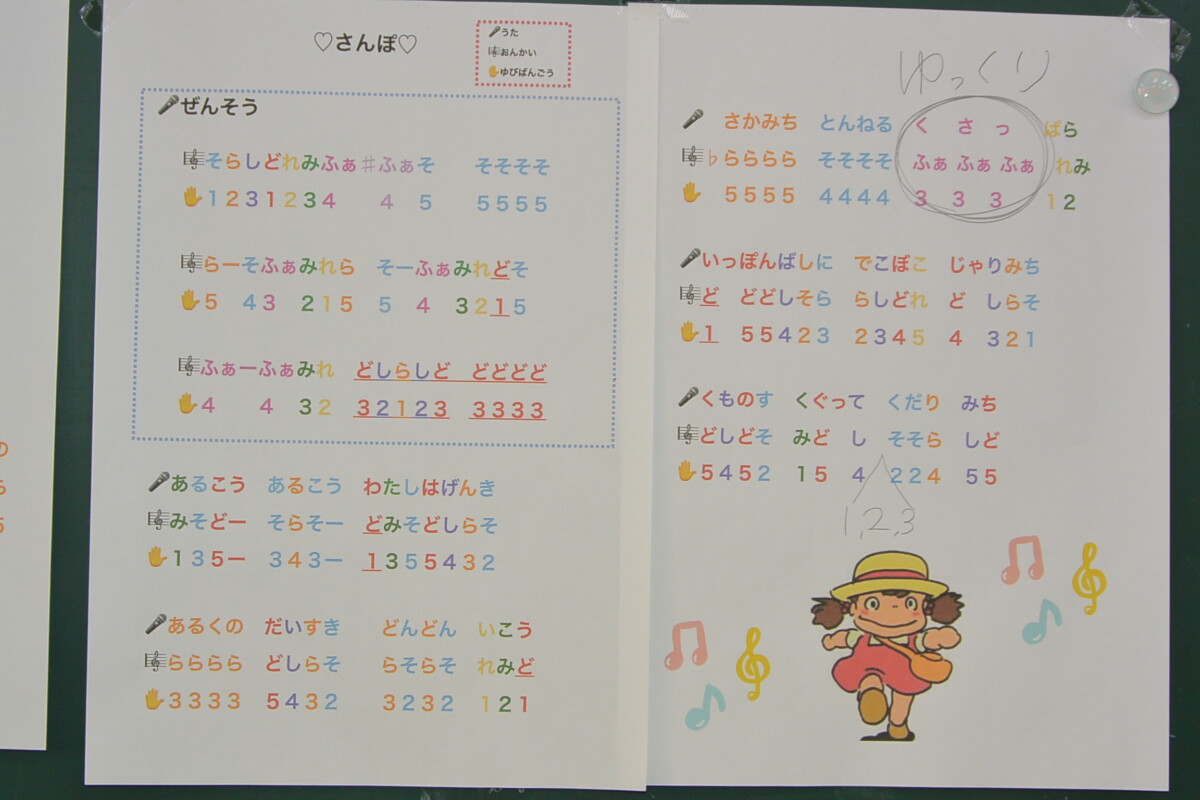 ♡さんぽ♡
うた
おんかい
ゆびばんごう
ぜんそう
そらしどれみふぁ♯ふぁそ そそそそ
1 2 3 1 2 3 4 4 5 5 5 5 5
らーそふぁみれら そーふぁみれどそ
5 4 3 2 1 5 5 4 3 2 1 5
ふぁーふぁみれ どしらしど どどどど
4 4 3 2 3 2 1 2 3 3 3 3 3
あるこう あるこう わたしはげんき
みそどー そらそー どみそどしらそ
1 3 5 ー 3 4 3 ー 1 3 5 5 4 3 2
あるくの だいすき どんどん いこう
らららら どしらそ らそらそ れみど
3 3 3 3 5 4 3 2 3 2 3 2 1 2 1
ゆっくり
さかみち とんねる く さ っ ぱら
♭らららら そそそそ ふぁ ふぁ ふぁ れみ
5 5 5 5 4 4 4 4 3 3 3 1 2
いっぽんばしに でこぼこ じゃりみち
ど どどしそら らしどれ ど しらそ
1 5 5 4 2 3 2 3 4 5 4 3 2 1
くものす くぐって くだり みち
どしどそ みど し そそら しど
5 4 5 2 1 5 4 2 2 4 5 5
1,2,3
の
ら
5